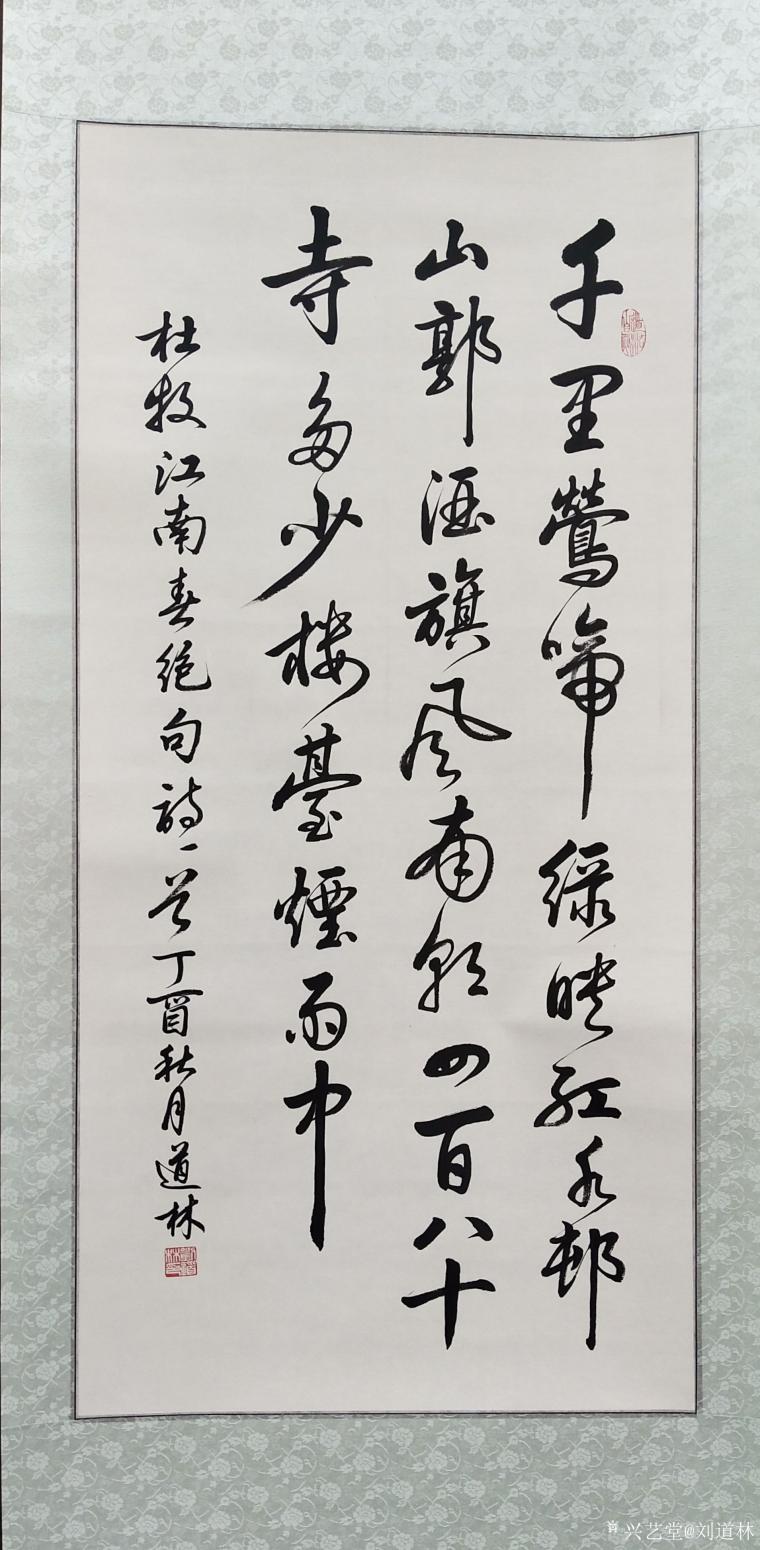 千里鶯啼緑映紅水邨
山郭酒旗風南朝四百八十
寺多少樓臺煙雨中
杜牧江南春绝句詩一首丁酉秋月道林
兴艺堂@刘道林